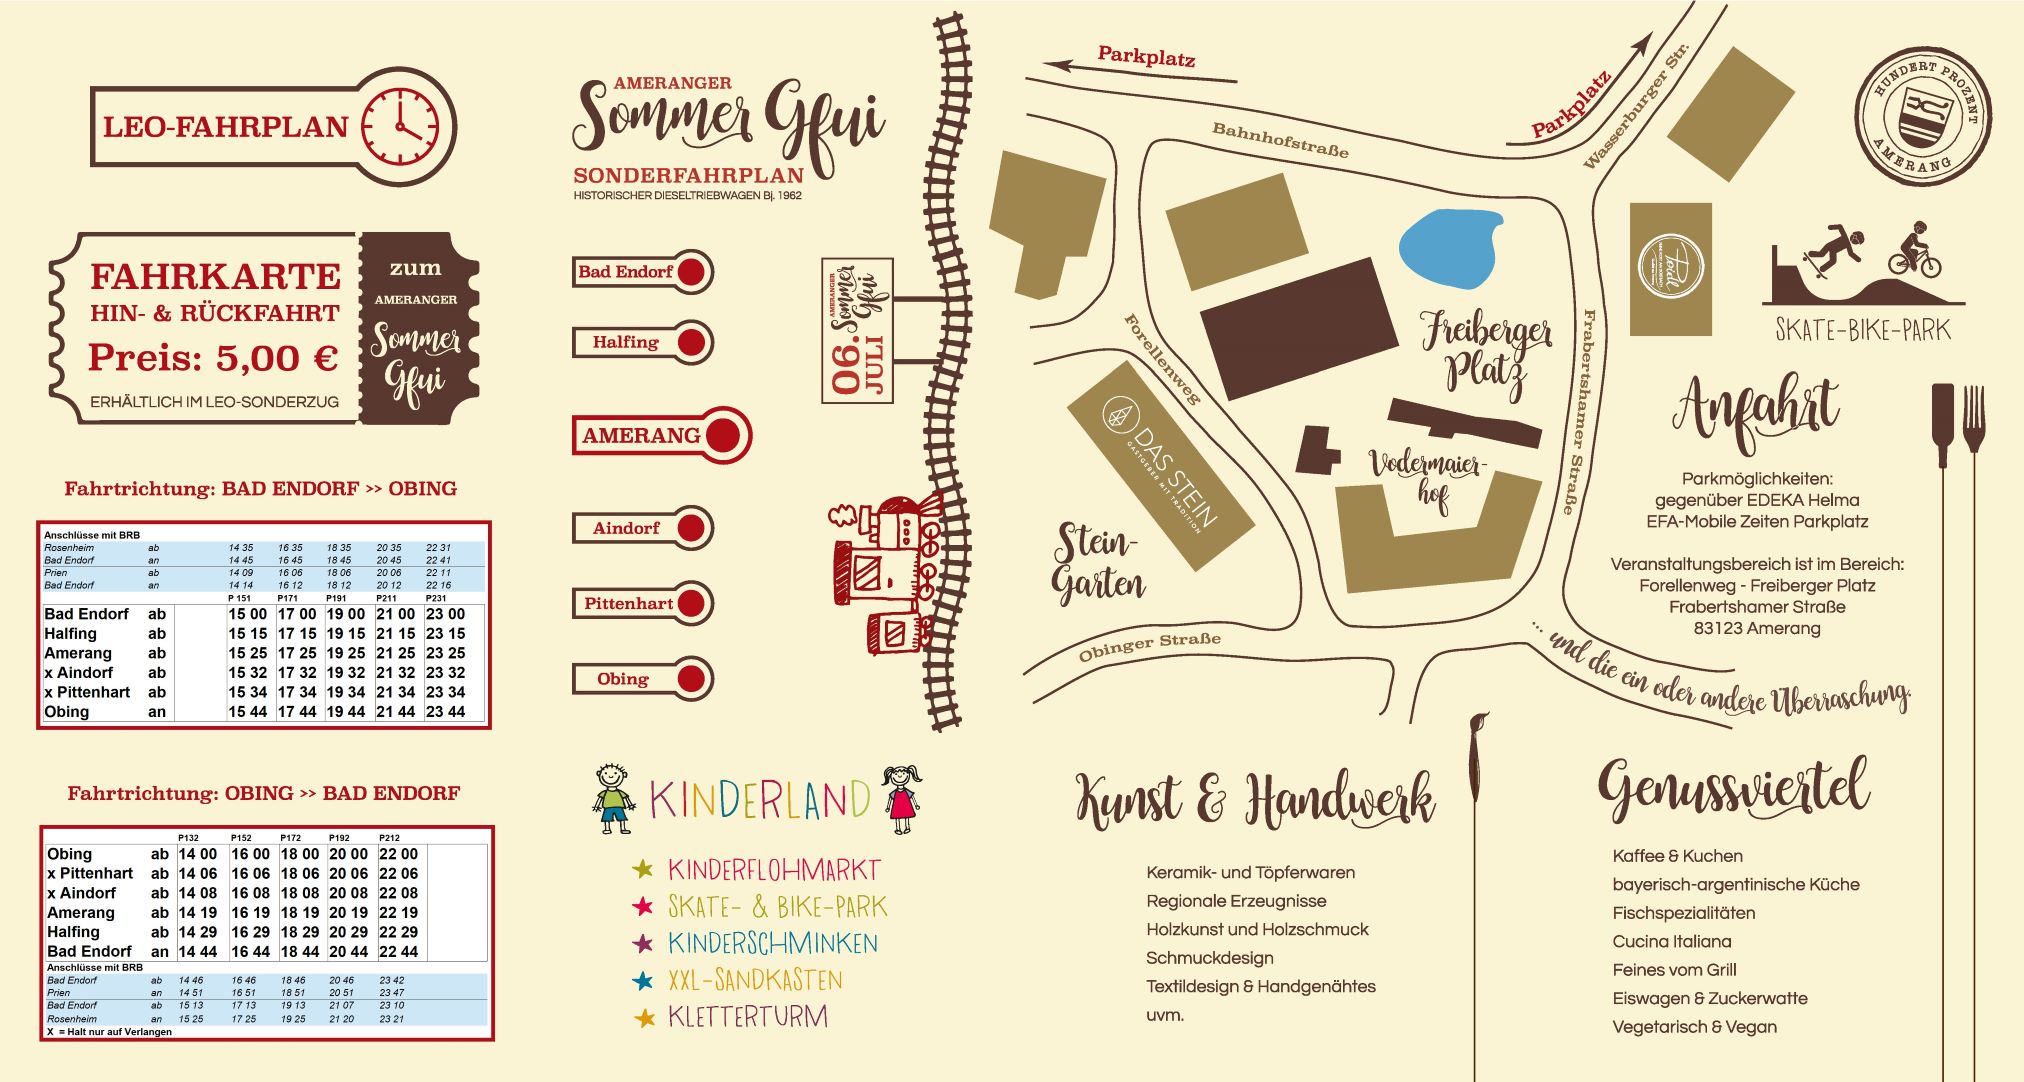 LEO-FAHRPLAN
FAHRKARTE
HIN- & RÜCKFAHRT
Preis: 5,00 €
ERHÄLTLICH IM LEO-SONDERZUG
zum
AMERANGER
Sommer
Gfui
Fahrtrichtung: BAD ENDORF >> OBING
Anschlüsse mit BRB
Rosenheim ab 14 35 16 35 18 35 20 35 22 31
Bad Endorf an 14 45 16 45 18 45 20 45 22 41
Prien ab 14 09 16 06 18 06 20 06 22 11
Bad Endorf an 14 14 16 12 18 12 20 12 22 16
P 151 P171 P191 P211 P231
Bad Endorf ab 15 00 17 00 19 00 21 00 23 00
Halfing ab 15 15 17 15 19 15 21 15 23 15
Amerang ab 15 25 17 25 19 25 21 25 23 25
x Aindorf ab 15 32 17 32 19 32 21 32 23 32
x Pittenhart ab 15 34 17 34 19 34 21 34 23 34
Obing an 15 44 17 44 19 44 21 44 23 44
Fahrtrichtung: OBING >> BAD ENDORF
P132 P152 P172 P192 P212
Obing ab 14 00 16 00 18 00 20 00 22 00
x Pittenhart ab 14 06 16 06 18 06 20 06 22 06
x Aindorf ab 14 08 16 08 18 08 20 08 22 08
Amerang ab 14 19 16 19 18 19 20 19 22 19
Halfing ab 14 29 16 29 18 29 20 29 22 29
Bad Endorf an 14 44 16 44 18 44 20 44 22 44
Anschlüsse mit BRB
Bad Endorf ab 14 46 16 46 18 46 20 46 23 42
Prien an 14 51 16 51 18 51 20 51 23 47
Bad Endorf ab 15 13 17 13 19 13 21 07 23 10
Rosenheim an 15 25 17 25 19 25 21 20 23 21
X = Halt nur auf Verlangen
AMERANGER
Sommer Gfui
SONDERFAHRPLAN
HISTORISCHER DIESELTRIEBWAGEN Bj. 1962
Bad Endorf
Halfing
AMERANG
Aindorf
Pittenhart
Obing
06.
JULI
AMERANGER
Sommer
Gfui
KINDERLAND
KINDERFLOHMARKT
SKATE- & BIKE-PARK
KINDERSCHMINKEN
XXL-SANDKASTEN
KLETTERTURM
Parkplatz
Parkplatz
Bahnhofstraße
Wasserburger Str.
Forellenweg
Frabertshamer Straße
Freiberger
Platz
Vodermaier-
hof
DAS STEIN
GASTGEBER MIT TRADITION
Stein-
Garten
Obinger Straße
... und die ein oder andere Überraschung.
HUNDERT PROZENT
AMERANG
SKATE-BIKE-PARK
Anfahrt
Parkmöglichkeiten:
gegenüber EDEKA Helma
EFA-Mobile Zeiten Parkplatz
Veranstaltungsbereich ist im Bereich:
Forellenweg - Freiberger Platz
Frabertshamer Straße
83123 Amerang
Kunst & Handwerk
Keramik- und Töpferwaren
Regionale Erzeugnisse
Holzkunst und Holzschmuck
Schmuckdesign
Textildesign & Handgenähtes
uvm.
Genussviertel
Kaffee & Kuchen
bayerisch-argentinische Küche
Fischspezialitäten
Cucina Italiana
Feines vom Grill
Eiswagen & Zuckerwatte
Vegetarisch & Vegan